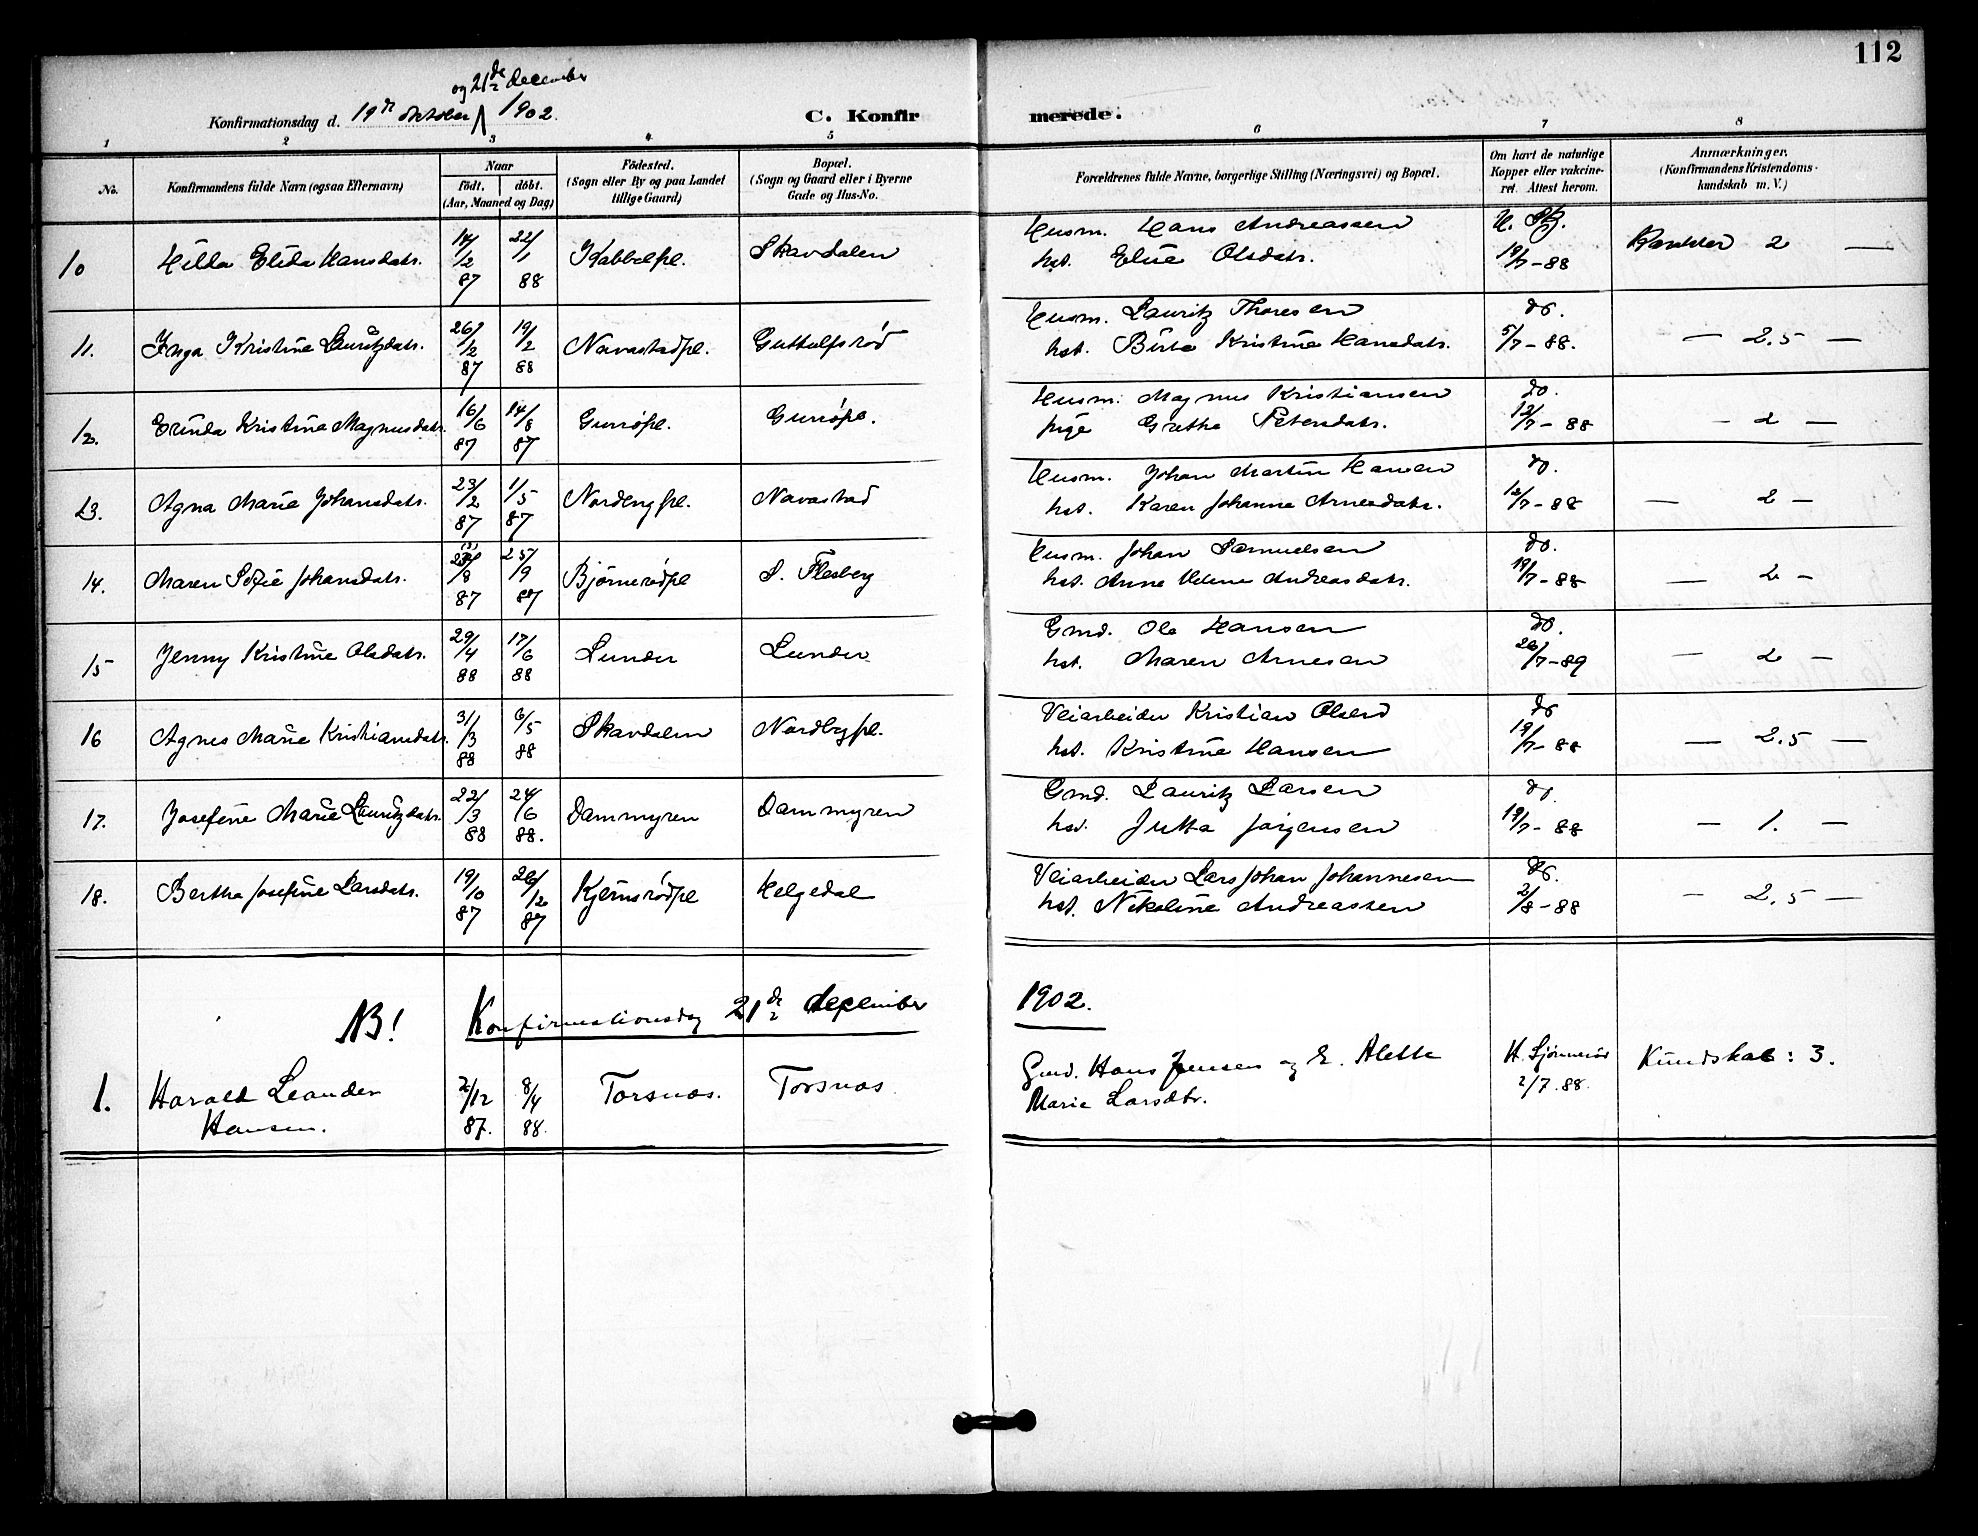 112
og 21de december
Konfirmationsdag d. 19de oktober 1902.
C. Konfirmerede.
1 2 3 4 5 6 7 8
No.
Konfirmandens fulde Navn (ogsaa Efternavn)
Naar
födt. döbt.
(Aar, Maaned og Dag)
Födested.
(Sogn eller By og paa Landet
tillige Gaard)
Bopæl.
(Sogn og Gaard eller i Byerne
Gade og Hus-No.
Forældrenes fulde Navne, borgerlige Stilling (Næringsvei) og Bopæl.
Om havt de naturlige
Kopper eller vakcine-
ret. Attest herom.
Anmærkninger.
(Konfirmandens Kristendoms-
kundskab m. V.)
10 Hilda Elida Hansdatr. 14/2 87 22/1 88 Kabbelpl. Skavdalen Husm. Hans Andreassen
hst. Eline Olsdatr. 19/7-88 Karakter 2 —
11. Inga Kristine Lauritzdatr. 26/2 87 19/2 88 Navestadpl. Guttulfsrød Husm. Lauritz Thoresen do.
hst. Birte Kristine Hansdatr. 5/7-88. — 2,5 —
12. Erinda Kristine Magnusdatr. 16/6 87 14/8 87 Gunröpl. Gunröpl. Husm. Magnus Kristiansen do.
pige Grethe Petersdatr. 12/7-88 — 2 —
13. Agna Marie Johansdatr. 23/2 87 1/5 87 Nordengpl. Navestad Husm. Johan Martin Hansen do.
hst. Karen Johanne Arnesdatr. 12/7-88 — 2 —
14. Maren Sofie Johansdatr. /8 87 25/9 87 Bjørnerødpl S. Flesberg Husm. Johan Samuelsen do.
hst. Anne Helene Andreasdatr. 19/7-88 — 2 —
15 Jenny Kristine Olsdatr. 29/4 88 17/6 88 Lunder Lunder Gmd. Ole Hansen do.
hst. Maren Arnesen 26/7-89 — 2 —
16 Agnes Marie Kristiansdatr. 31/3 88 6/5 88 Skavdalen Nordbypl. Veiarbeider Kristian Olsen do
hst. Kristine Hansen 19/7-88 — 2.5 —
17. Josefine Marie Lauritzdatr. 22/3 88 24/6 88. Dammyren Dammyren Gmd. Lauritz Larsen do.
hst. Jutta Jørgensen 19/7-88 — 1. —
18. Bertha Josefine Larsdatr. 19/10 87 26/12 87 Kjernsrødpl Helgedal Veiarbeider Lars Johan Johannesen do.
hst. Nikoline Andreassen 2/8-88 — 2,5 —
NB! Konfirmationsdag 21de december 1902.
1. Harald Leander 2/12 87. 8/4 88. Torsnæs. Torsnæs Gmd. Hans Jensen og E. Alette H. Kundskab: 3.
Hansen. Marie Larsdtr. 2/7.88.